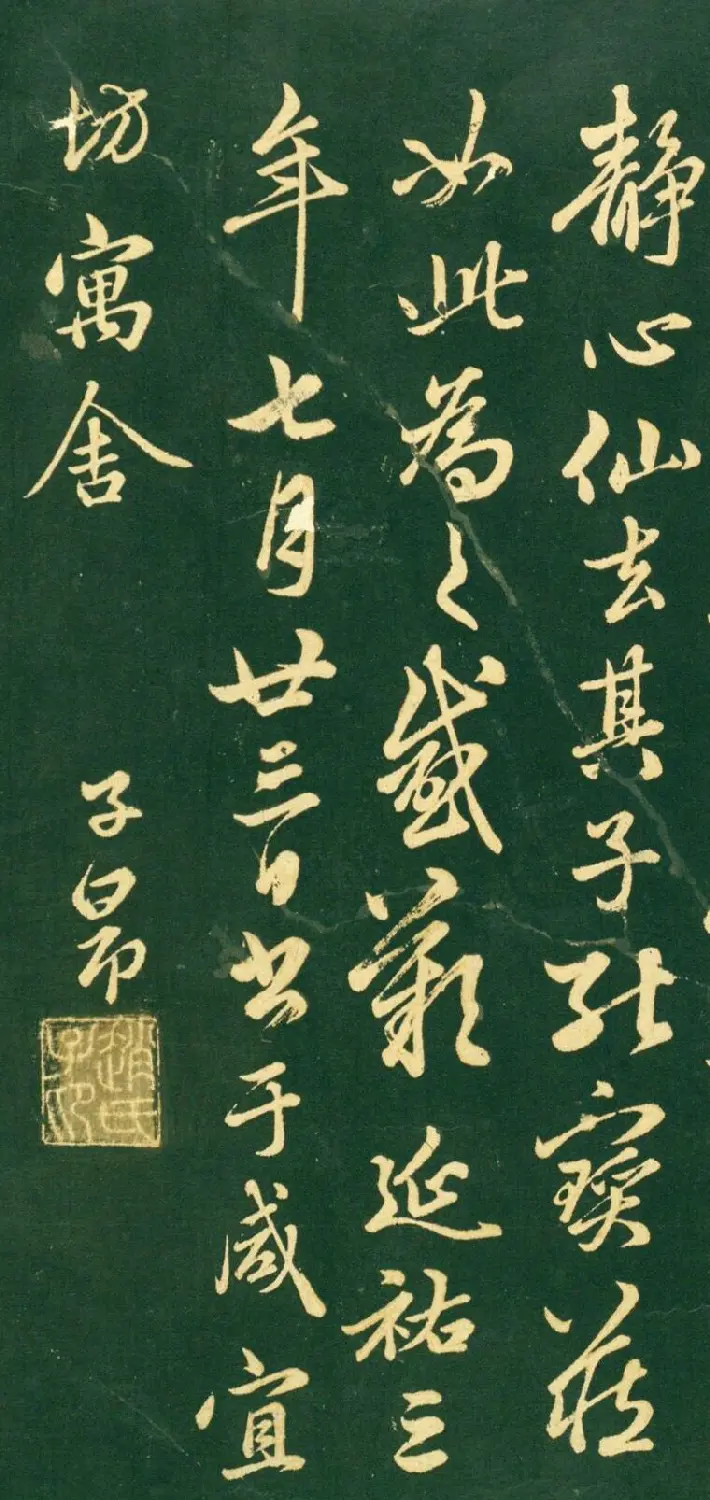 静心仙去其子能寳藏
如此為之感歎延祐三
年七月廿三日書于咸宜
坊寓舍
子昂
趙氏子昂